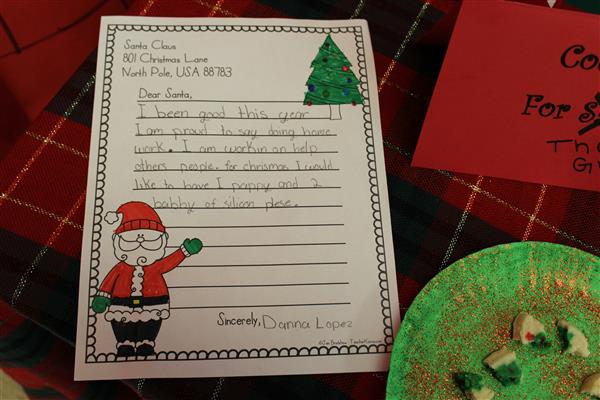 Santa Claus
801 Christmas Lane
North Pole, USA 88783
Dear Santa,
I been good this year
I am proud to say doing home
work. I am workin on help
others people. for chrismas I would
like to have I pappy and 2
babby of silicon plese.
Sincerely, Danna Lopez
For